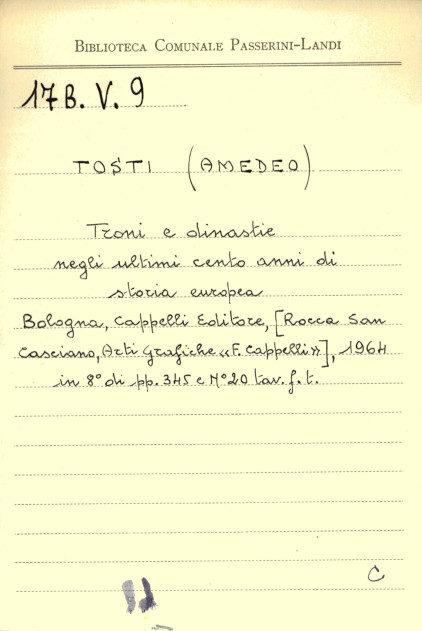 BIBLIOTECA COMUNALE PASSERINI-LANDI
17B. V. 9
TOSTI (AMEDEO)
Troni e dinastie
negli ultimi cento anni di
storia europea
Bologna, Cappelli Editore, [Rocca San
Casciano, Arti Grafiche «F. Cappelli»], 1964
in 8° di pp. 345 e N° 20 tav. f. t.
C